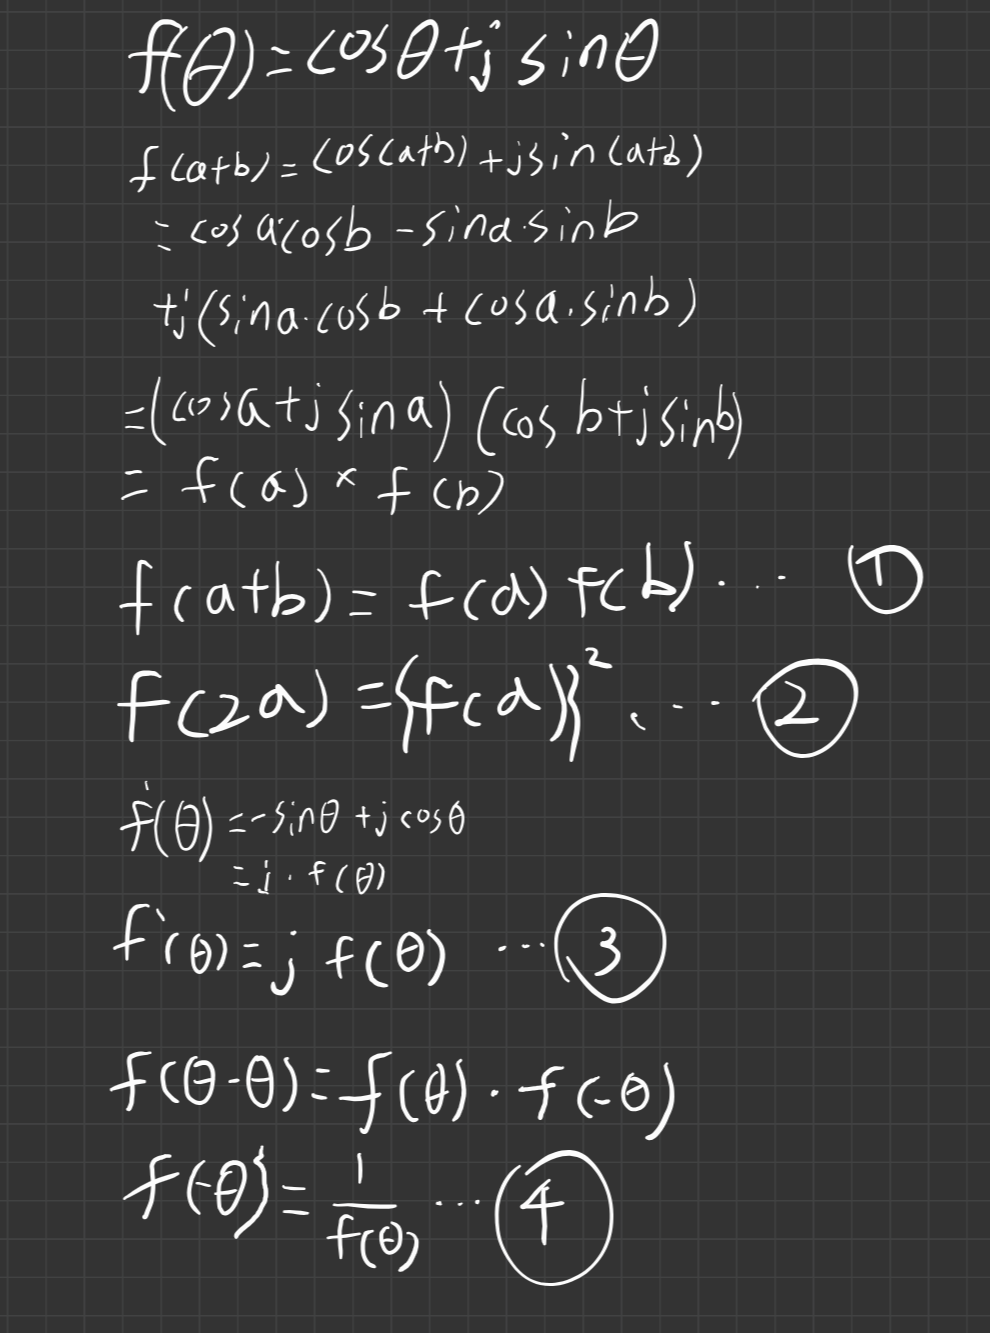 f(θ)=cosθ+j sinθ
f(a+b)=cos(a+b)+jsin(a+b)
=cos a·cosb -sina·sinb
+j(sina·cosb + cosa·sinb)
=(cosa+j sina) (cos b+j sinb)
= f(a) × f(b)
f(a+b)= f(a) f(b)... ①
f(2a)={f(a)}² ... ②
f'(θ)=-sinθ+j cosθ
=j·f(θ)
f'(θ)=j f(θ) ...③
f(θ-θ)=f(θ)·f(-θ)
f(-θ)=1/f(θ) ...④